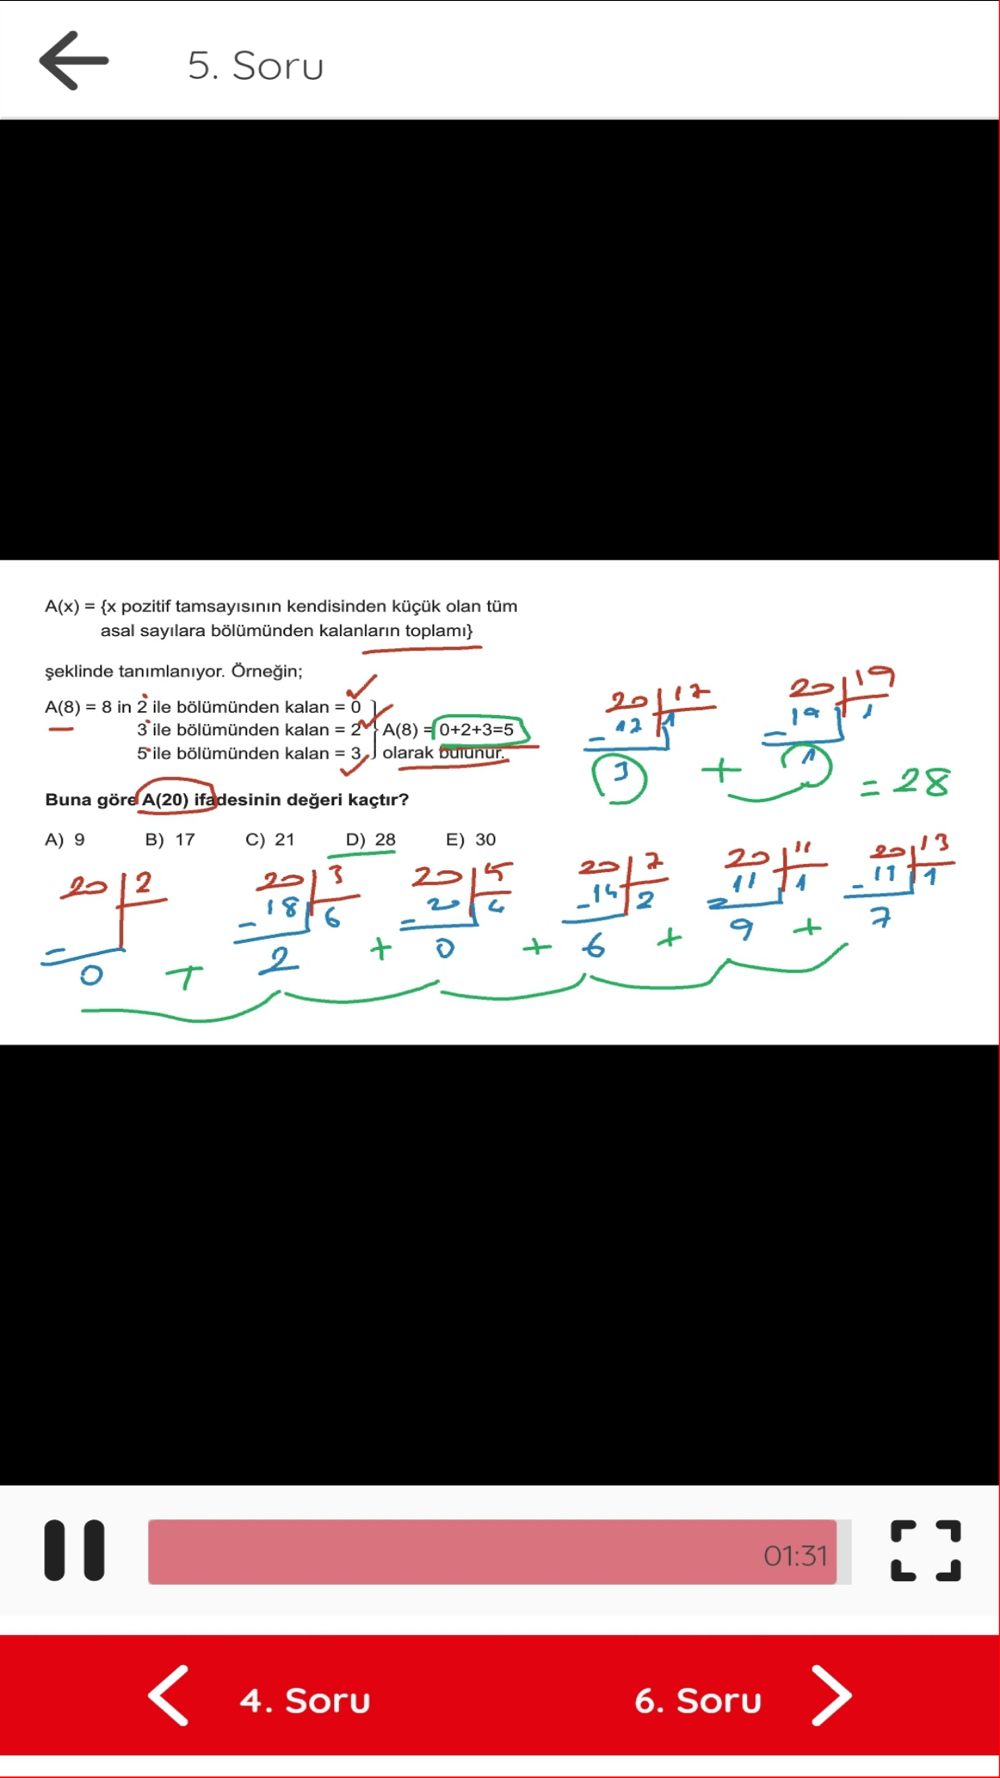 5. Soru
A(x) = {x pozitif tamsayısının kendisinden küçük olan tüm
asal sayılara bölümünden kalanların toplamı}
şeklinde tanımlanıyor. Örneğin;
A(8) = 8 in 2 ile bölümünden kalan = 0
3 ile bölümünden kalan = 2 A(8) = 0+2+3=5
5 ile bölümünden kalan = 3 olarak bulunur.
20 17
- 17 1
3
+
20 19
- 19 1
1
= 28
Buna göre A(20) ifadesinin değeri kaçtır?
A) 9 B) 17 C) 21 D) 28 E) 30
20 2
0
+
20 3
- 18 6
2
+
20 5
- 20 4
0
+
20 7
- 14 2
6
+
20 11
- 11 1
9
+
20 13
- 11 1
7
01:31
4. Soru 6. Soru